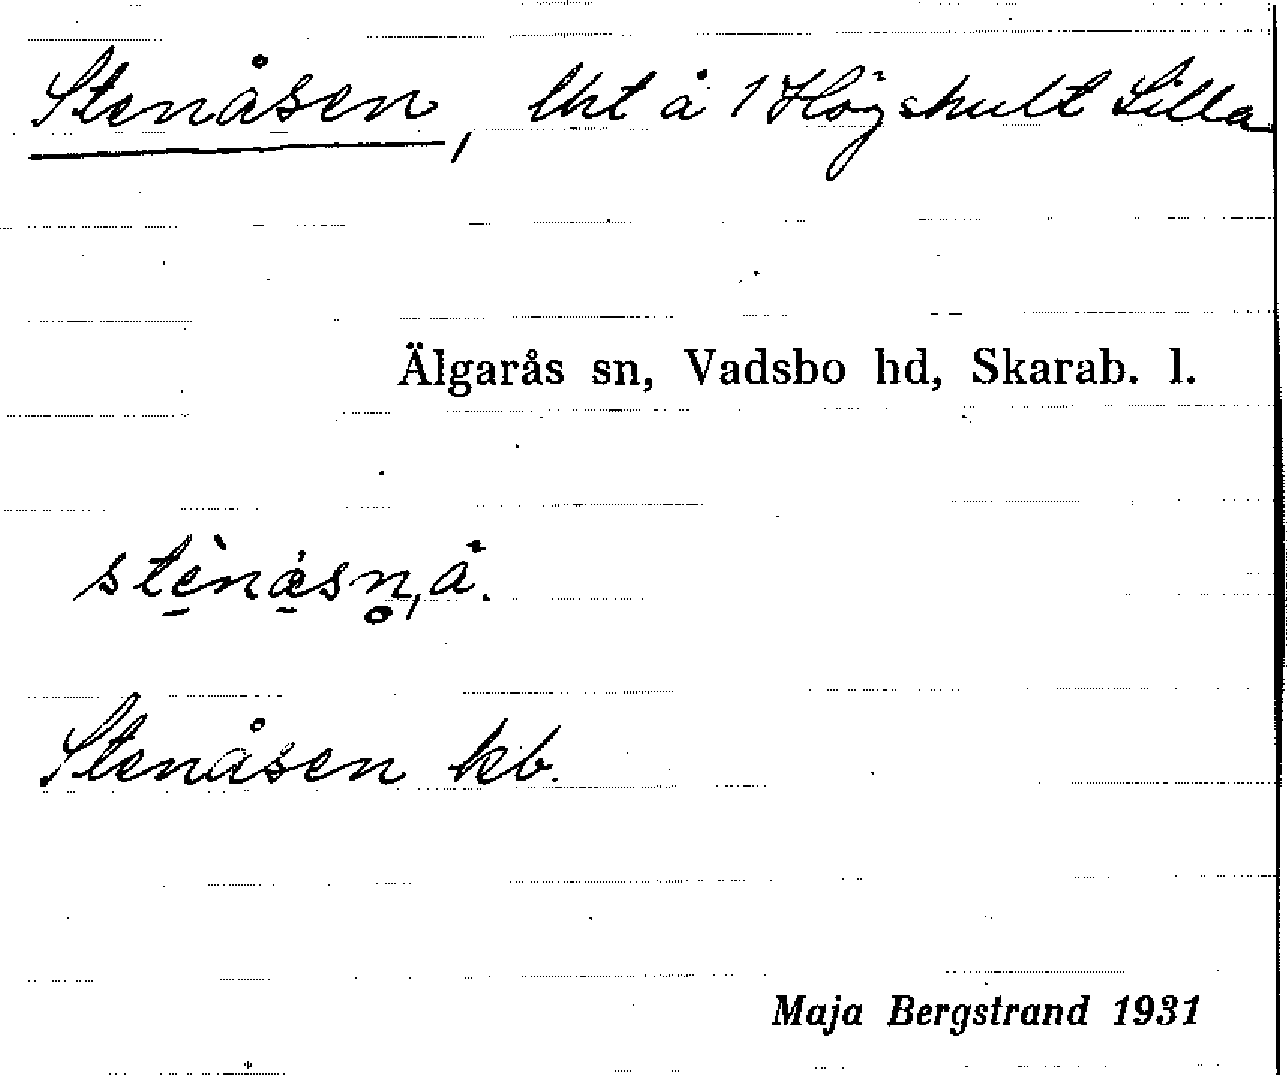 Stenåsen, lht å 1 Högshult Lilla
Älgarås sn, Vadsbo hd, Skarab. l.
stè̠nå̠sn̥, å.
Stenåsen kb.
Maja Bergstrand 1931